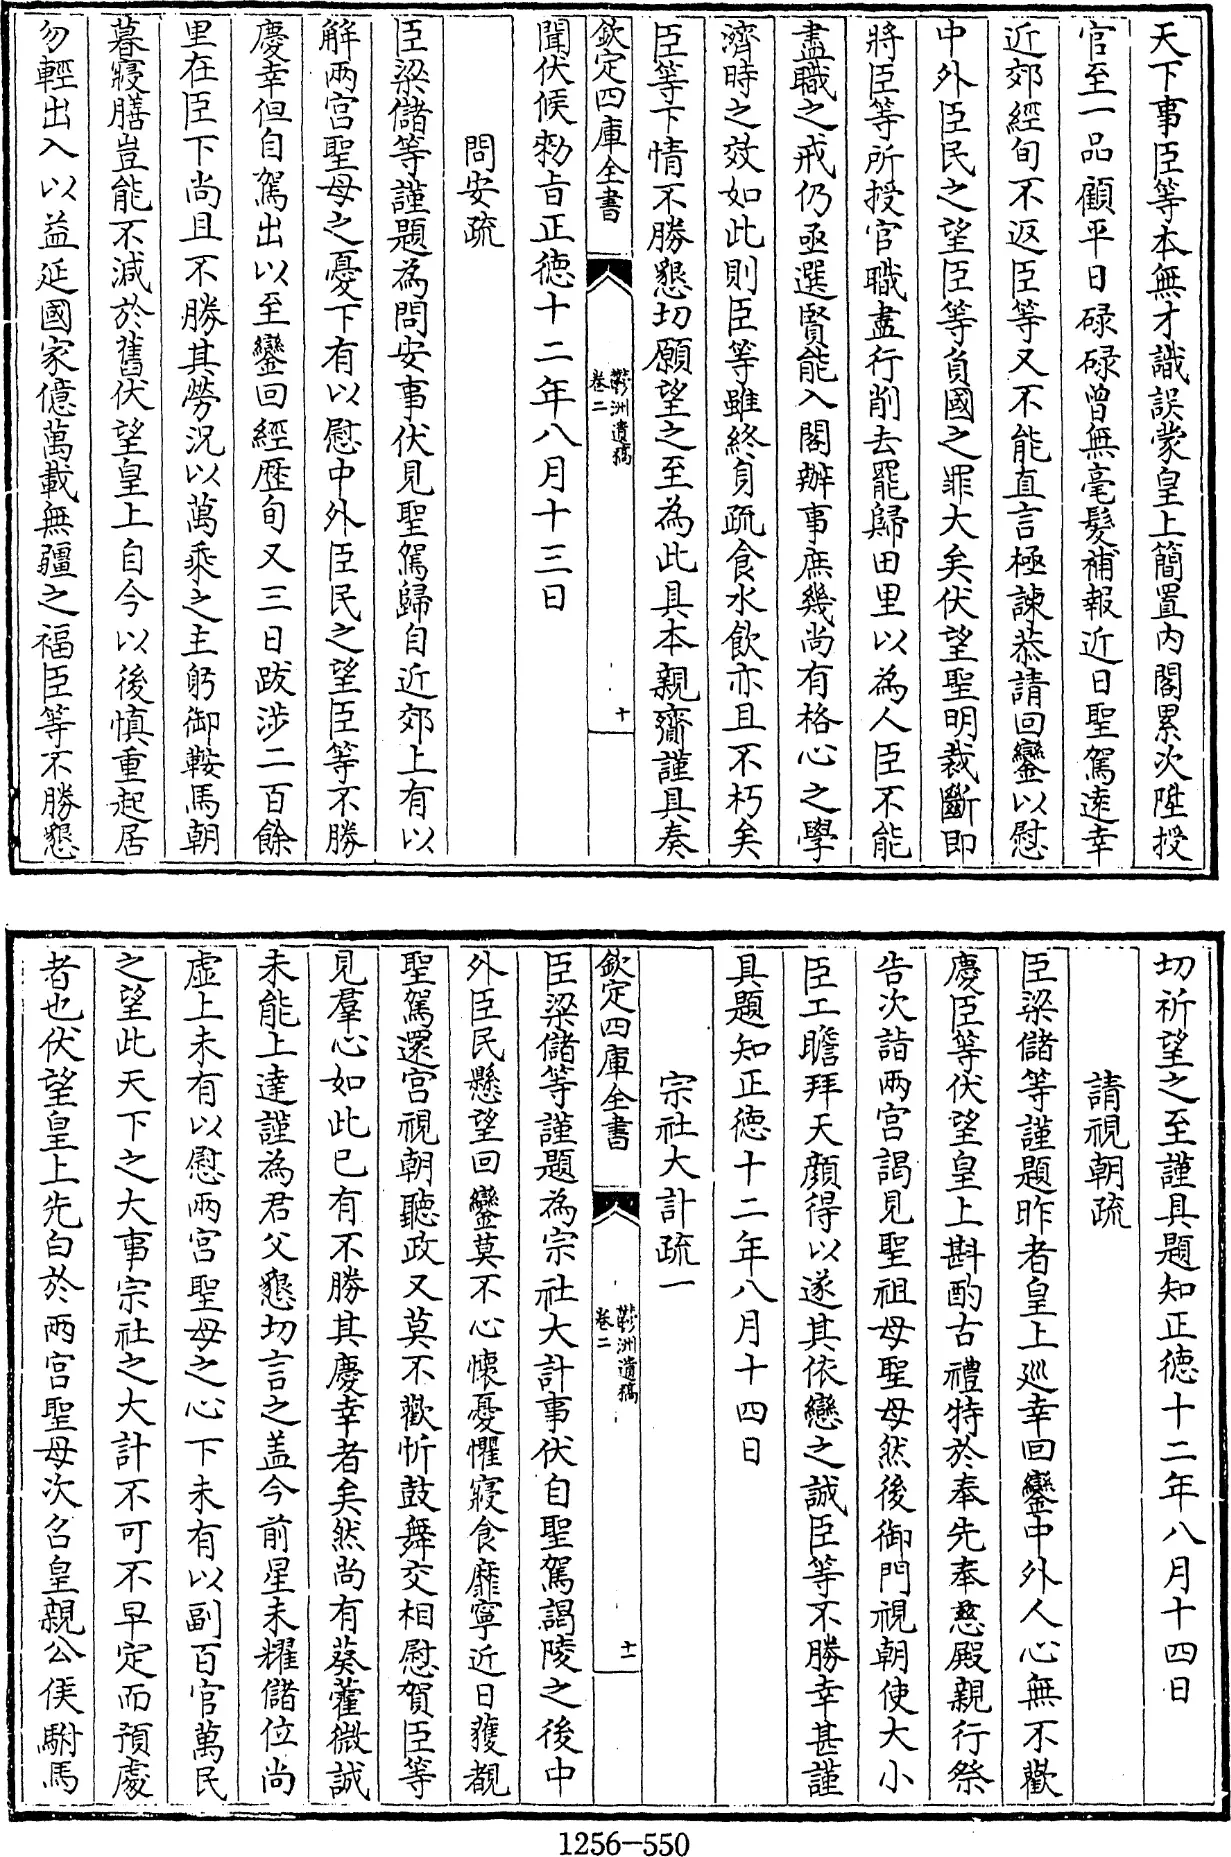 天下事臣等本無才識誤蒙皇上簡置内閣累次陞授
官至一品顧平日碌碌曾無毫髮補報近日聖駕逺幸
近郊經旬不返臣等又不能直言極諫恭請回鑾以慰
中外臣民之望臣等負國之罪大矣伏望聖明裁斷即
將臣等所授官職盡行削去罷歸田里以為人臣不能
盡職之戒仍亟選賢能入閣辦事庶幾尚有格心之學
濟時之效如此則臣等雖終身疏食水飲亦且不朽矣
臣等下情不勝懇切願望之至為此具本親齎謹具奏
欽定四庫全書
鬱洲遺稿
卷二
十
聞伏候勅旨正徳十二年八月十三日
問安疏
臣梁儲等謹題為問安事伏見聖駕歸自近郊上有以
解兩宫聖母之憂下有以慰中外臣民之望臣等不勝
慶幸但自駕出以至鑾回經歴旬又三日跋涉二百餘
里在臣下尚且不勝其勞況以萬乘之主躬御鞍馬朝
暮寢膳豈能不減於舊伏望皇上自今以後慎重起居
勿輕出入以益延國家億萬載無疆之福臣等不勝懇
切祈望之至謹具題知正徳十二年八月十四日
請視朝疏
臣梁儲等謹題昨者皇上廵幸回鑾中外人心無不歡
慶臣等伏望皇上斟酌古禮特於奉先奉慈殿親行祭
告次詣兩宫謁見聖祖母聖母然後御門視朝使大小
臣工瞻拜天顔得以遂其依戀之誠臣等不勝幸甚謹
具題知正徳十二年八月十四日
宗社大計疏一
欽定四庫全書
鬱洲遺稿
卷二
十一
臣梁儲等謹題為宗社大計事伏自聖駕謁陵之後中
外臣民懸望回鑾莫不心懐憂懼寢食靡寧近日獲覩
聖駕還宫視朝聽政又莫不歡忻鼓舞交相慰賀臣等
見羣心如此已有不勝其慶幸者矣然尚有葵藿微誠
未能上達謹為君父懇切言之盖今前星未耀儲位尚
虚上未有以慰兩宫聖母之心下未有以副百官萬民
之望此天下之大事宗社之大計不可不早定而預處
者也伏望皇上先白於兩宫聖母次召皇親公侯駙馬
1256-550